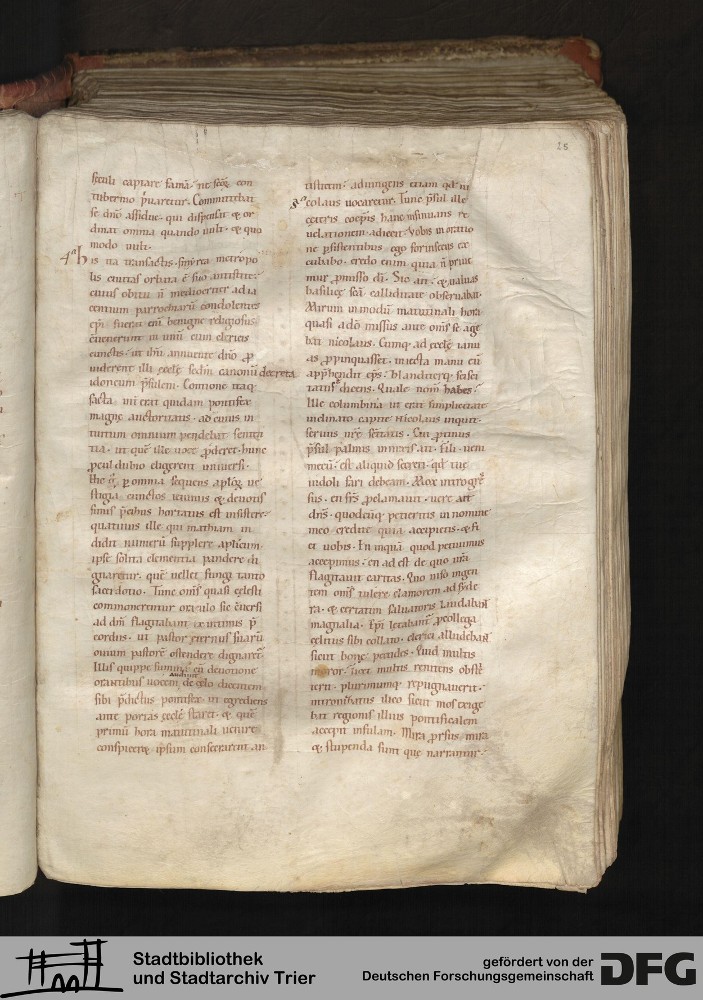 25
seculi captare famā. ut seq̄ con
tubernio p̄uaretur. Committebat
se dn̄o assidue. qui dispensat & or
dinat omnia quando uult. & quo
modo uult.
4ᵃ his ita transactis. mirrea metropo
lis ciuitas orbata ē suo antistite.
cuius obitu n̄ mediocriter adia
centium parrochiarū condolentes
ep̄i fuerat eni benigne religiosus
cōuenerunt in unū cum clericis
cunctis. ut ibi annuente dn̄o p̄
uiderent illi ęcclę scdm̄ canonū decreta
idoneum p̄sulem. Contione itaq;
facta. inerat quidam pontifex
magnę auctoritatis. ad cuius in
tuitum omnium pendebat senten
tia. ut quē ille uoce p̄deret. hunc
p̄cul dubio eligerent uniuersi.
Hic g̊ p̄ omnia sequens ap̄lor̄ ue
stigia. cunctos ieiuniis & deuotis
simis p̄cibus hortatus est insistere.
quatinus ille qui mathiam in
didit numerū supplere ap̄licum.
ipse solita clementia pandere di
gnaretur. quē uellet fungi tanto
sacerdotio. Tunc om̄s quasi cęlesti
commonerentur oraculo sic cūersi
ad dn̄i flagitabant ex intimis p̄
cordiis. ut pastor ęternus suarū
ouium pastorē ostendere dignaret̄.
Illis quippe summa cū deuotione
orantibus uocem audiuit de cęlo dicentem
sibi p̄dictus pontifex. ut egrediens
ante portas ęcclę staret. & quē
primū hora matutinali uenire
conspiceret. ipsum consecrarent an
tistitem. adiungens etiam qd' ni
colaus uocaretur. Tunc p̄sul ille
cęteris coep̄is hanc insinuans re
uelationem. adiecit. Vobis in oratio
ne p̄sistentibus. ego forinsecus ex
cubabo. credo enim quia n̄ priue
mur p̄misso d̄i. Sic ait. & ualuas
basilicę sc̄a calliditate obseruabat.
Mirum in modū matutinali hora
quasi a dō missus ante om̄s se age
bat nicolaus. Cumq; ad ęcclę ianu
as p̄pinquasset. iniecta manu eū
app̄hendit ep̄s. blandeq; scisci
tatus dicens. Quale nom̄ habes.
Ille columbina ut erat simplicitate
inclinato capite. Nicolaus inquit.
seruus ur̄e sc̄itatis. Cui p̄tinus
p̄sul p̄ allatis inueris ait. Fili. ueni
mecū. est aliquid secreti. qd' tue
indoli fari debeam. Mox introgres
sus. en fr̄s p̄clamauit. uere ait
dn̄s. quodcūq; petieritis in nomine
meo credite quia accipietis. & fi
et uobis. En inquā quod petiuimus
accepimus. en adest de quo ur̄a
flagitauit caritas. Quo uiso ingen
tem om̄s tulere clamorem ad syde
ra. & certatim saluatoris laudabant
magnalia. Ep̄i letabant̄ p̄ collega
cęlitus sibi collato. clerici alludebant
sicut bonę pecudes. Quid multis
moror. licet multis renitens obste
terit. plurimumq; repugnauerit.
intronizatus ilico sicut mos exige
bat regionis illius pontificalem
accepit infulam. Mira p̄rsus. mira
& stupenda sunt quę narramus.
Stadtbibliothek
und Stadtarchiv Trier
gefördert von der
Deutschen Forschungsgemeinschaft
DFG